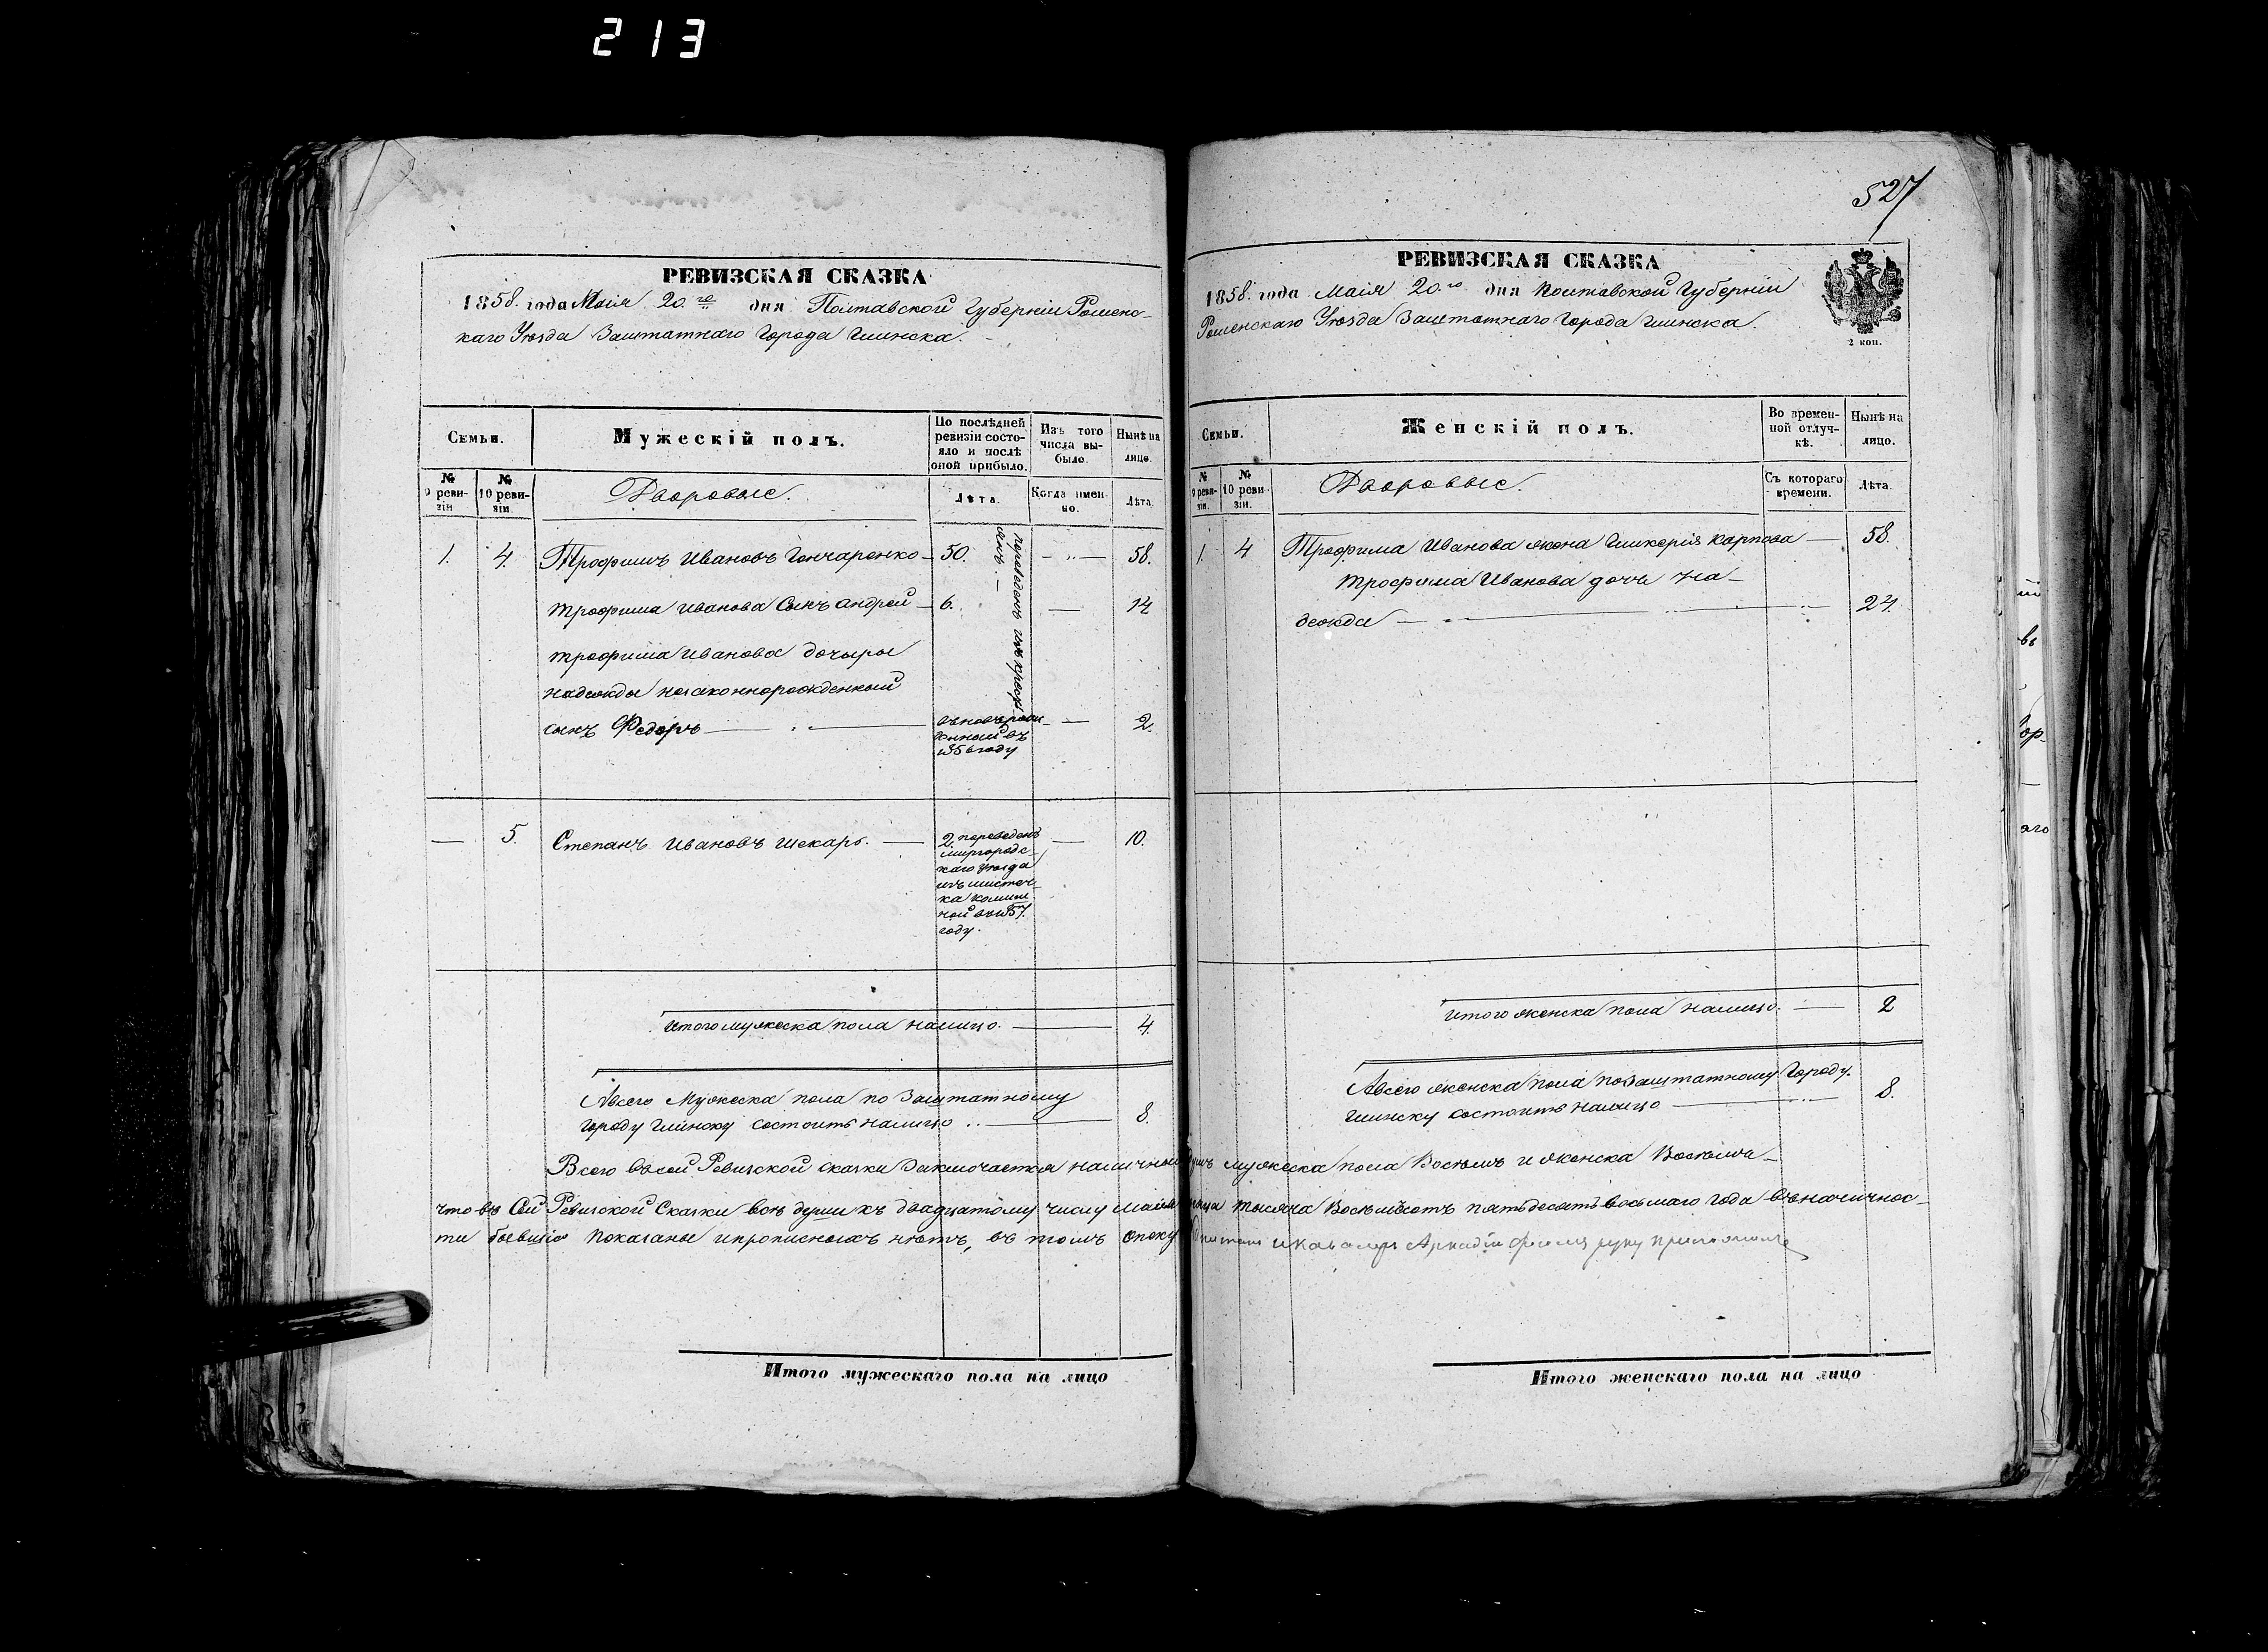 213
527
РЕВИЗСКАЯ СКАЗКА
1858. года Маія 20.го дня Полтавской Губерніи Роменс-
каго Уѣзда Заштатнаго Города Глинска.
Семьи.
Мужескій полъ.
По послѣдней ревизіи состояло и послѣ оной прибыло.
Изъ того числа выбыло.
Нынѣ на лицо.
№ 9 ревизіи
№ 10 ревизіи.
Дворовые.
Лѣта.
Когда именно.
Лѣта.
1. 4. Трофимъ Ивановъ Гончаренко — 50. — 58.
переведенъ изъ крес
янъ. —
Трофима Иванова Сынъ Андрей — 6. — 14
Трофима Иванова дочыры
Надежды незаконнорожденный
сынъ Федоръ — 2.
вновьрож
денный въ
1856 году
— 5. Степанъ Ивановъ Шекарь. — 10.
2. переведенъ
Миргородс-
каго уѣзда
изъ мистеч-
ка Комиш
ной въ 1857.
году.
Итого мужеска пола налицо. — 4.
А всего Мужеска пола по Заштатному
Городу Глинску состоитъ налицо .. — 8.
РЕВИЗСКАЯ СКАЗКА
1858. года Маія 20.го дня Полтавской Губерніи
Роменскаго Уѣзда Заштатнаго Города Глинска.
2 коп.
Семьи.
Женскій полъ.
Во временной отлучкѣ.
Нынѣ на лицо.
№ 9 ревизіи.
№ 10 ревизіи.
Дворовые.
Съ котораго времени.
Лѣта.
1. 4 Трофима Иванова жена Гликерія Карпова — 58.
Трофима Иванова дочь На-
дежда — 24.
Итого женска пола налицо. — 2
А всего женска пола по Заштатному Городу
Глинску состоитъ налицо — 8.
Всего въ сей Ревизской сказки Заключается наличныхъ душъ мужеска пола Восемь и женска Восемь-
что въ Сей Ревизской Сказки всѣ души къ двадцатому числу Маія мѣсяца тысяча Восемьсотъ пятьдесятъ восьмаго года въ наличнос-
ти бывшіе показаны и прописныхъ нѣтъ, въ томъ и Кавалеръ Аркадій руку приложилъ
Итого мужескаго пола на лицо
Итого женскаго пола на лицо